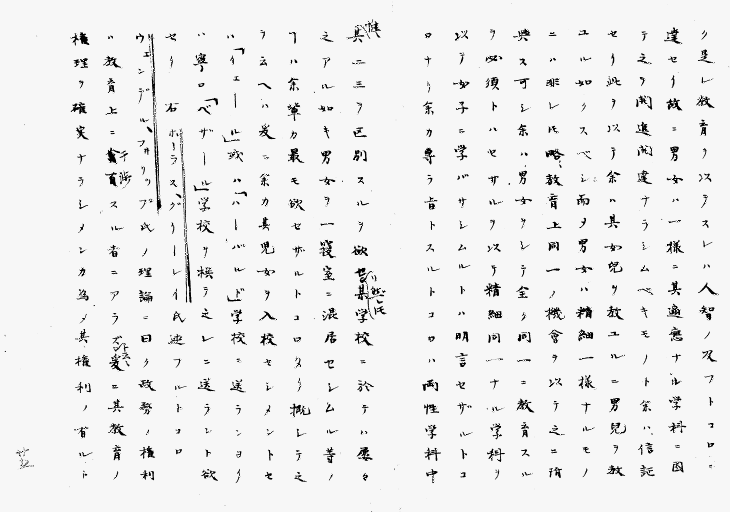 ク是レ教育ヲ以テスレハ人智ノ及フトコロニ
達セリ故ニ男女ハ一様ニ其適應ナル学科ニ因
テ之ヲ開進開達ナラシムベキモノト余ハ信認
セリ此ヲ以テ余ハ其女兒ヲ教ユルニ男兒ヲ教
ユル如クスベシ而メ男女ハ精細一様ナルモノ
ニハ非レ圧略教育上同一ノ機會ヲ以テ之ニ
與ス可シ余ハ男女ヲシテ全ク同一ニ教育スル
ヲ必須トハセザルヲ以テ精細同一ナル学科ヲ
以テ女子ニ学バサシムルトハ明言セザルトコ
ロナリ余カ專ラ旨トスルトコロハ両性学科中
其二三ヲ区別スルヲ欲セリ然圧某学校ニ於テハ屡々
之アル如キ男女ヲ一寝室ニ混居セシムル等ノ
フハ余輩カ最モ欲セザルトコロタリ概シテ之
ラ云ヘハ爰ニ余カ其児女ヲ入校セシメントセ
ハ「イェール」或ハ「ハーバルド」学校ニ送ランヨリ
ハ寧ロ「ベザール」学校ヲ撰テ之レニ送ラント欲
セリ 右ホーラス、グリーレイ氏述フルトコロ
ウェンデル、フォリップ氏ノ理論ニ曰ク政務ノ権利
ハ教育上ニ干渉スル者ニアラ爰ニ其教育ノ
権理ヲ確実ナラシメンカ為メ其権利ノ有ルト